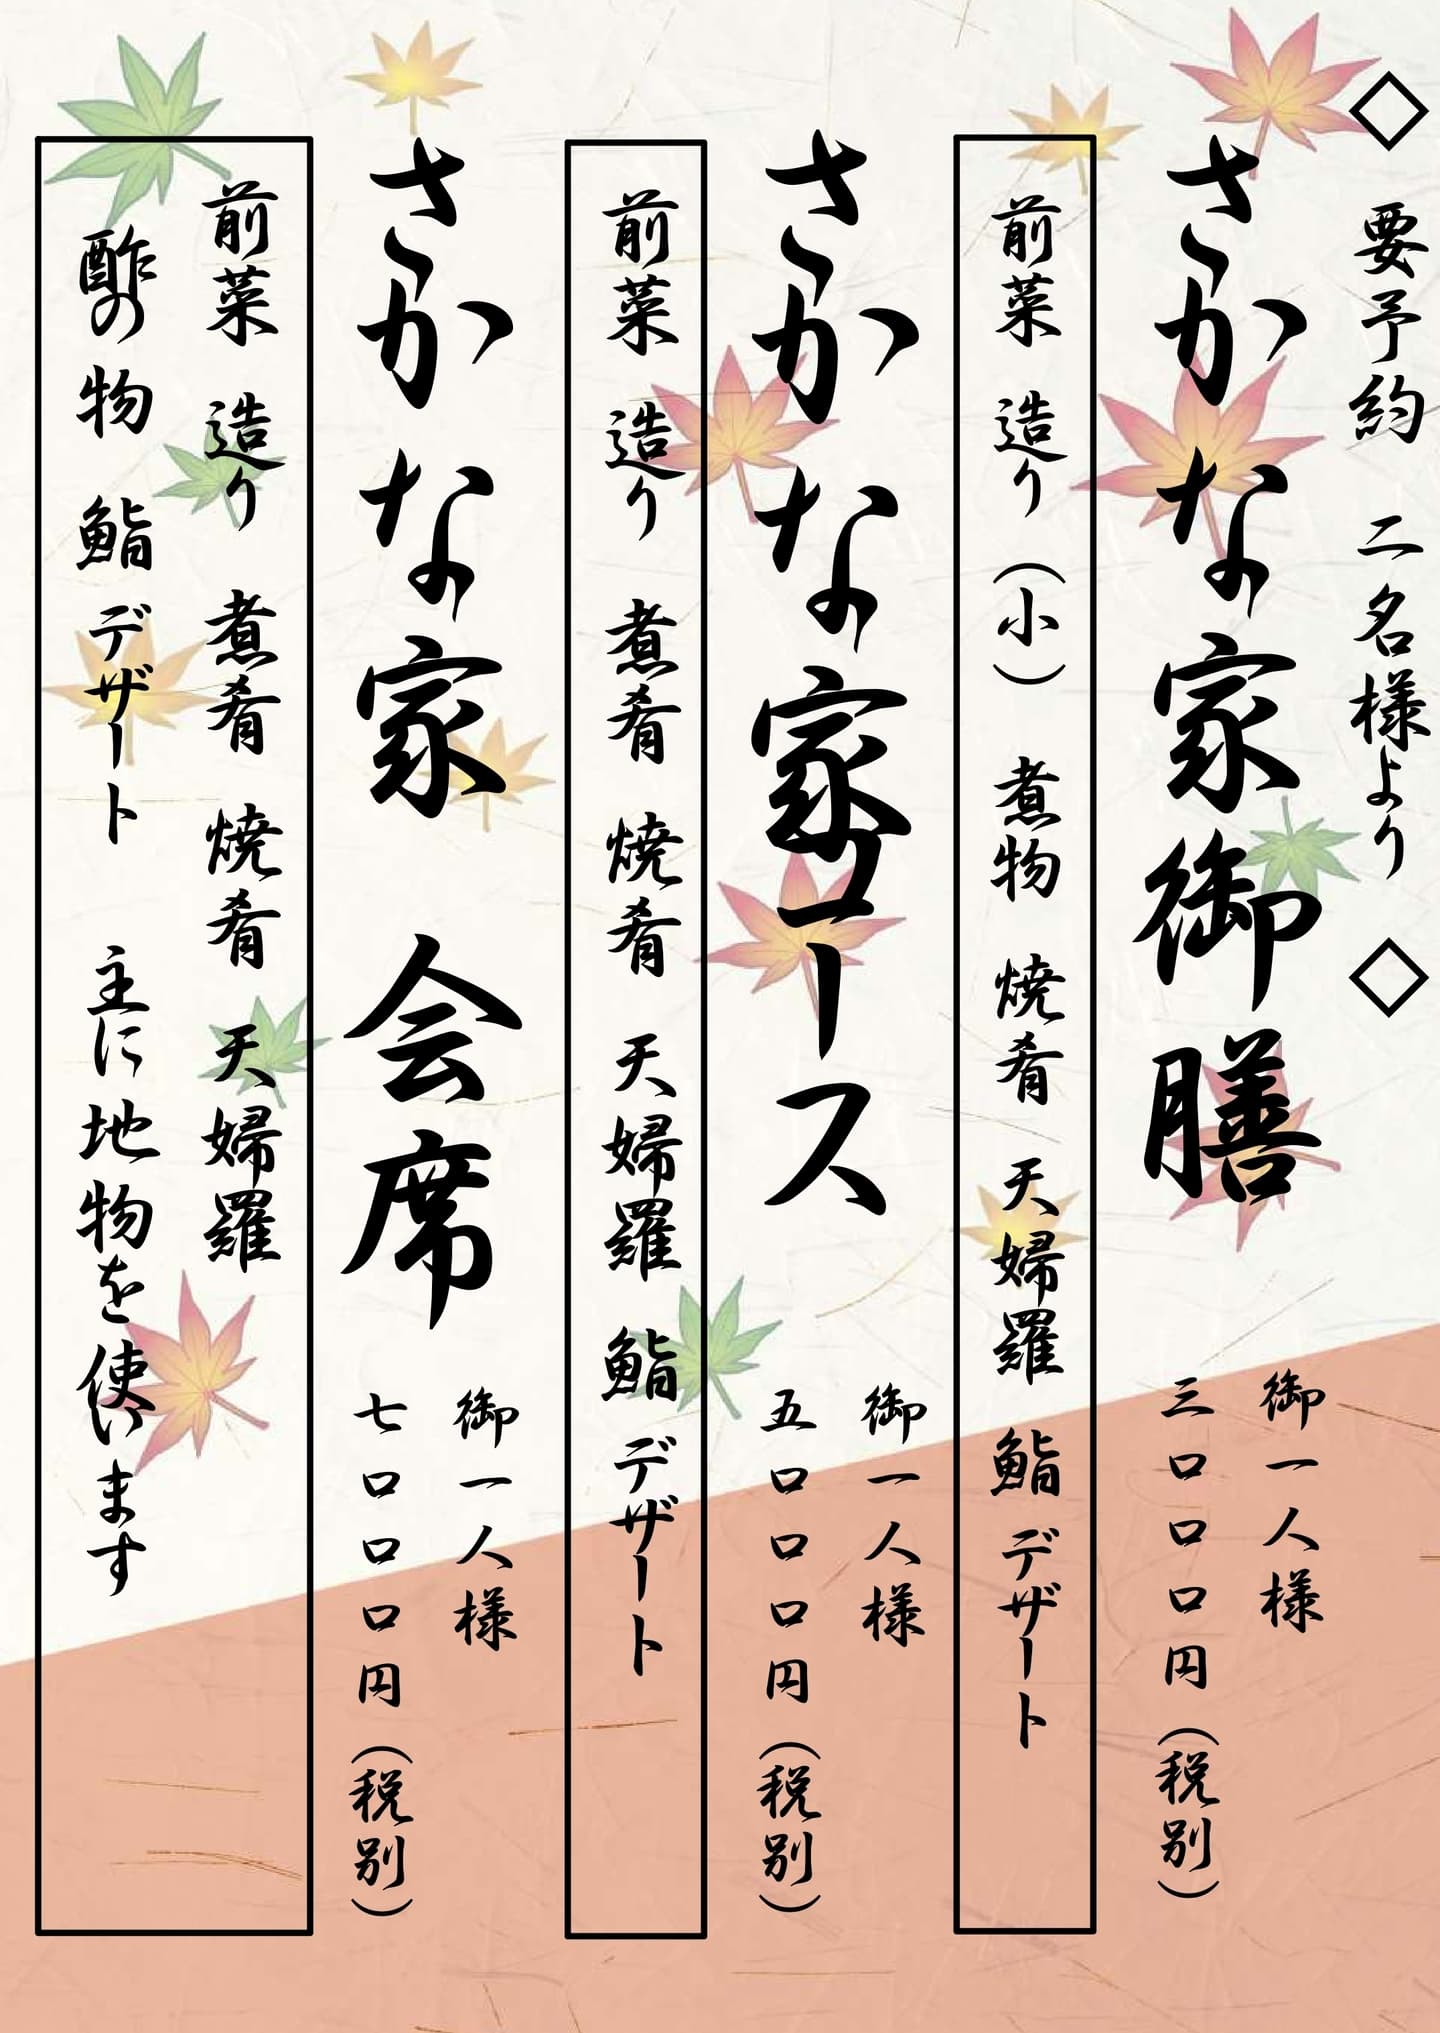 ◇ 要予約 二名様より ◇
さかな家御膳
御一人様
三〇〇〇円（税別）
前菜 造り（小） 煮物 焼肴 天婦羅 鮨 デザート
さかな家コース
御一人様
五〇〇〇円（税別）
前菜 造り 煮肴 焼肴 天婦羅 鮨 デザート
さかな家 会席
御一人様
七〇〇〇円（税別）
前菜 造り 煮肴 焼肴 天婦羅
酢の物 鮨 デザート 主に地物を使います